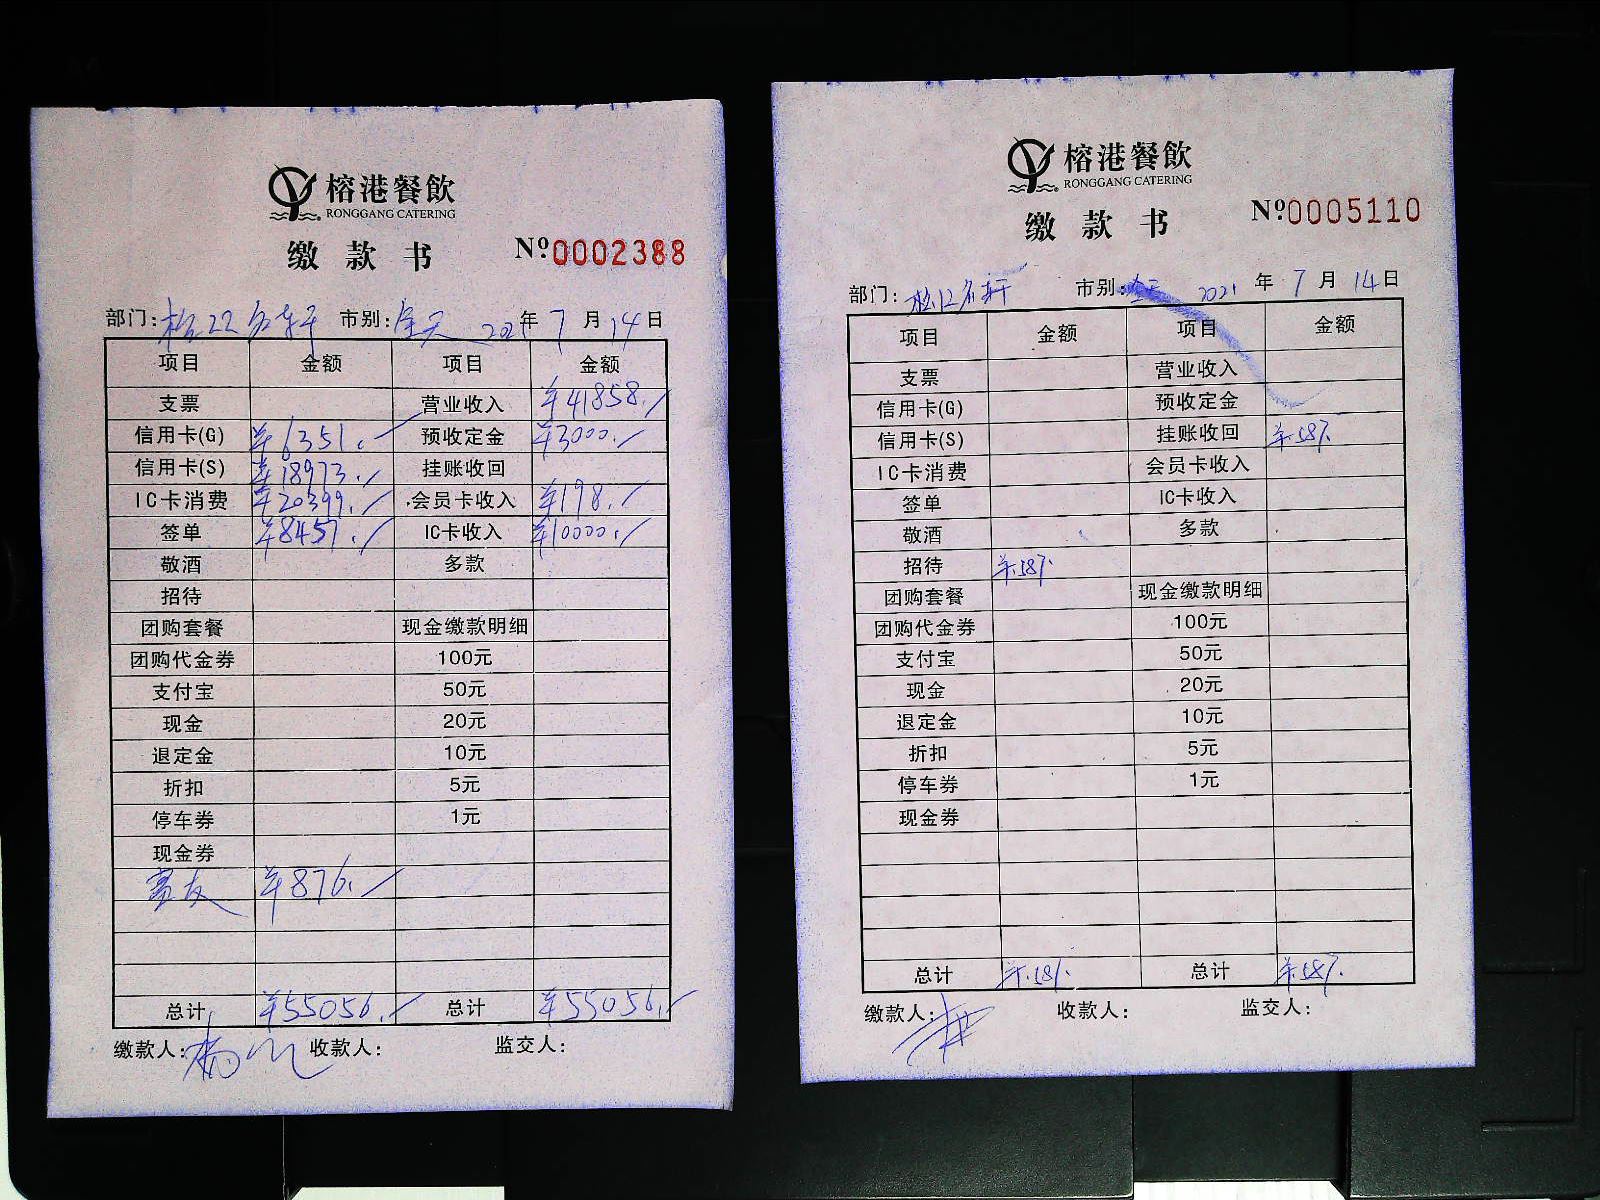 榕港餐飲
RONGGANG CATERING
缴款书 №0002388
部门: 市别:全天 2021年7月14日
项目 金额 项目 金额
支票 营业收入 ¥41858.
信用卡(G) ¥6351. 预收定金 ¥3000.
信用卡(S) ¥18973. 挂账收回
IC卡消费 ¥20399. 会员卡收入 ¥198.
签单 ¥8457. IC卡收入 ¥10000.
敬酒 多款
招待
团购套餐 现金缴款明细
团购代金券 100元
支付宝 50元
现金 20元
退定金 10元
折扣 5元
停车券 1元
现金券
¥876.
总计 ¥55056. 总计 ¥55056.
缴款人: 收款人: 监交人:
榕港餐飲
RONGGANG CATERING
缴款书 №0005110
部门: 市别:全天 2021年7月14日
项目 金额 项目 金额
支票 营业收入
信用卡(G) 预收定金
信用卡(S) 挂账收回 ¥587.
IC卡消费 会员卡收入
签单 IC卡收入
敬酒 多款
招待 ¥587.
团购套餐 现金缴款明细
团购代金券 100元
支付宝 50元
现金 20元
退定金 10元
折扣 5元
停车券 1元
现金券
总计 ¥587. 总计 ¥587.
缴款人: 收款人: 监交人: